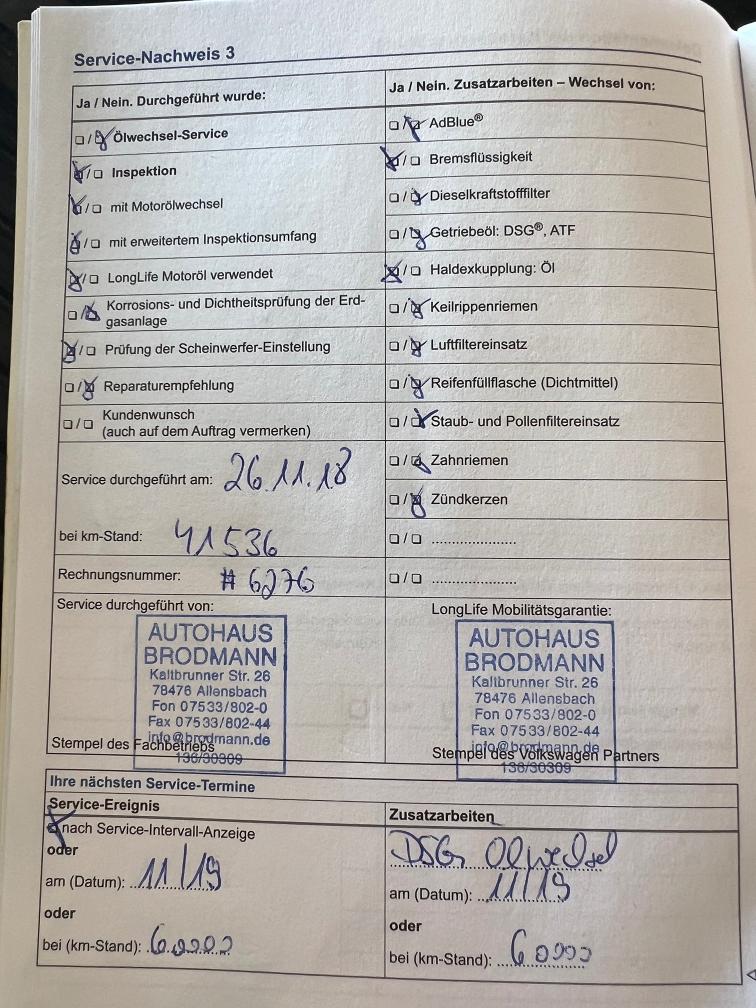 Service-Nachweis 3
Ja / Nein. Durchgeführt wurde:
Ölwechsel-Service
Inspektion
mit Motorölwechsel
mit erweitertem Inspektionsumfang
LongLife Motoröl verwendet
Korrosions- und Dichtheitsprüfung der Erd-
gasanlage
Prüfung der Scheinwerfer-Einstellung
Reparaturempfehlung
Kundenwunsch
(auch auf dem Auftrag vermerken)
Service durchgeführt am: 26.11.18
bei km-Stand: 41536
Rechnungsnummer: # 6276
Service durchgeführt von:
AUTOHAUS
BRODMANN
Kaltbrunner Str. 26
78476 Allensbach
Fon 07533/802-0
Fax 07533/802-44
info@brodmann.de
Stempel des Fachbetriebs
136/30309
Ja / Nein. Zusatzarbeiten – Wechsel von:
AdBlue®
Bremsflüssigkeit
Dieselkraftstofffilter
Getriebeöl: DSG®, ATF
Haldexkupplung: Öl
Keilrippenriemen
Luftfiltereinsatz
Reifenfüllflasche (Dichtmittel)
Staub- und Pollenfiltereinsatz
Zahnriemen
Zündkerzen
LongLife Mobilitätsgarantie:
AUTOHAUS
BRODMANN
Kaltbrunner Str. 26
78476 Allensbach
Fon 07533/802-0
Fax 07533/802-44
info@brodmann.de
Stempel des Volkswagen Partners
136/30309
Ihre nächsten Service-Termine
Service-Ereignis
nach Service-Intervall-Anzeige
oder
am (Datum): 11/19
oder
bei (km-Stand): 60000
Zusatzarbeiten
DSG Ölwechsel
am (Datum): 11/19
oder
bei (km-Stand): 60000